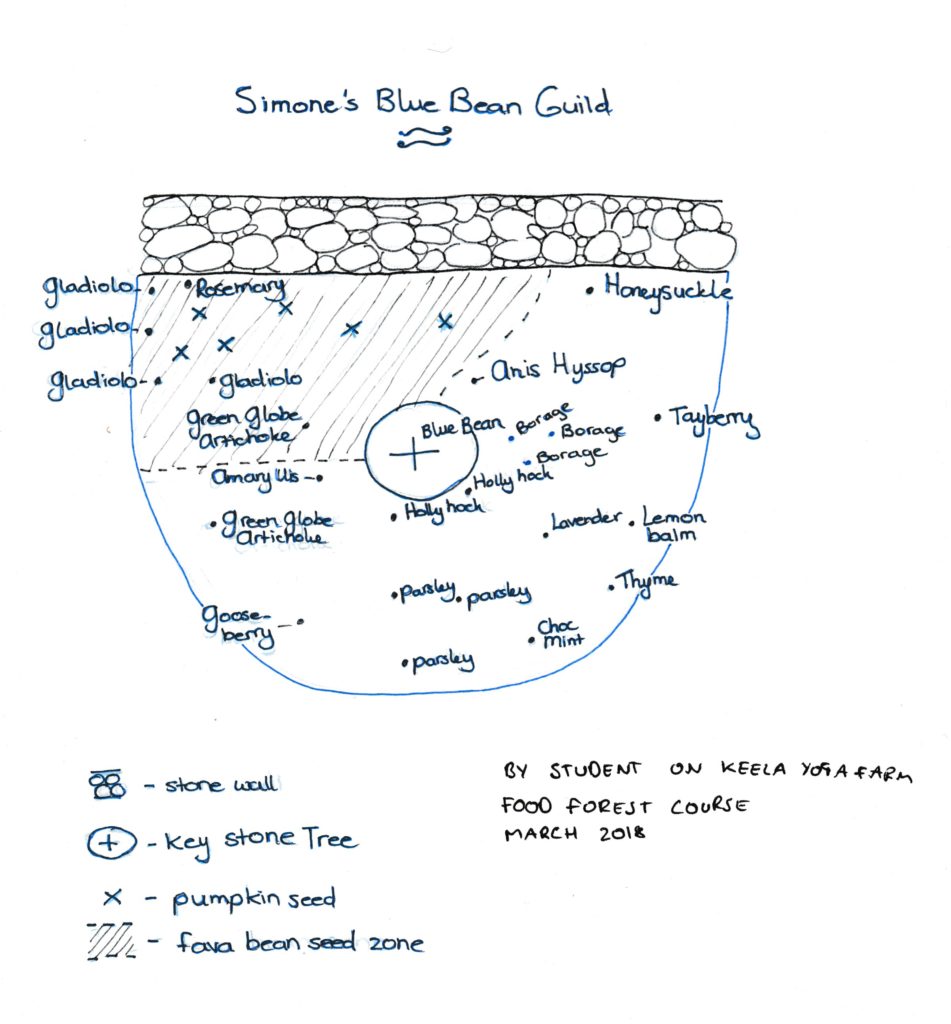 Simone's Blue Bean Guild
gladiolo
Rosemary
Honeysuckle
gladiolo
gladiolo
gladiolo
Anis Hyssop
green globe
Artichoke
Blue Bean
Borage
Borage
Borage
Tayberry
Amaryllis
Holly hock
Holly hock
green globe
Artichoke
Lavender
Lemon
balm
parsley
parsley
Thyme
goose-
berry
Choc
mint
parsley
- stone wall
- key stone Tree
- pumpkin seed
- fava bean seed zone
BY STUDENT ON KEELA YOGA FARM
FOOD FOREST COURSE
MARCH 2018